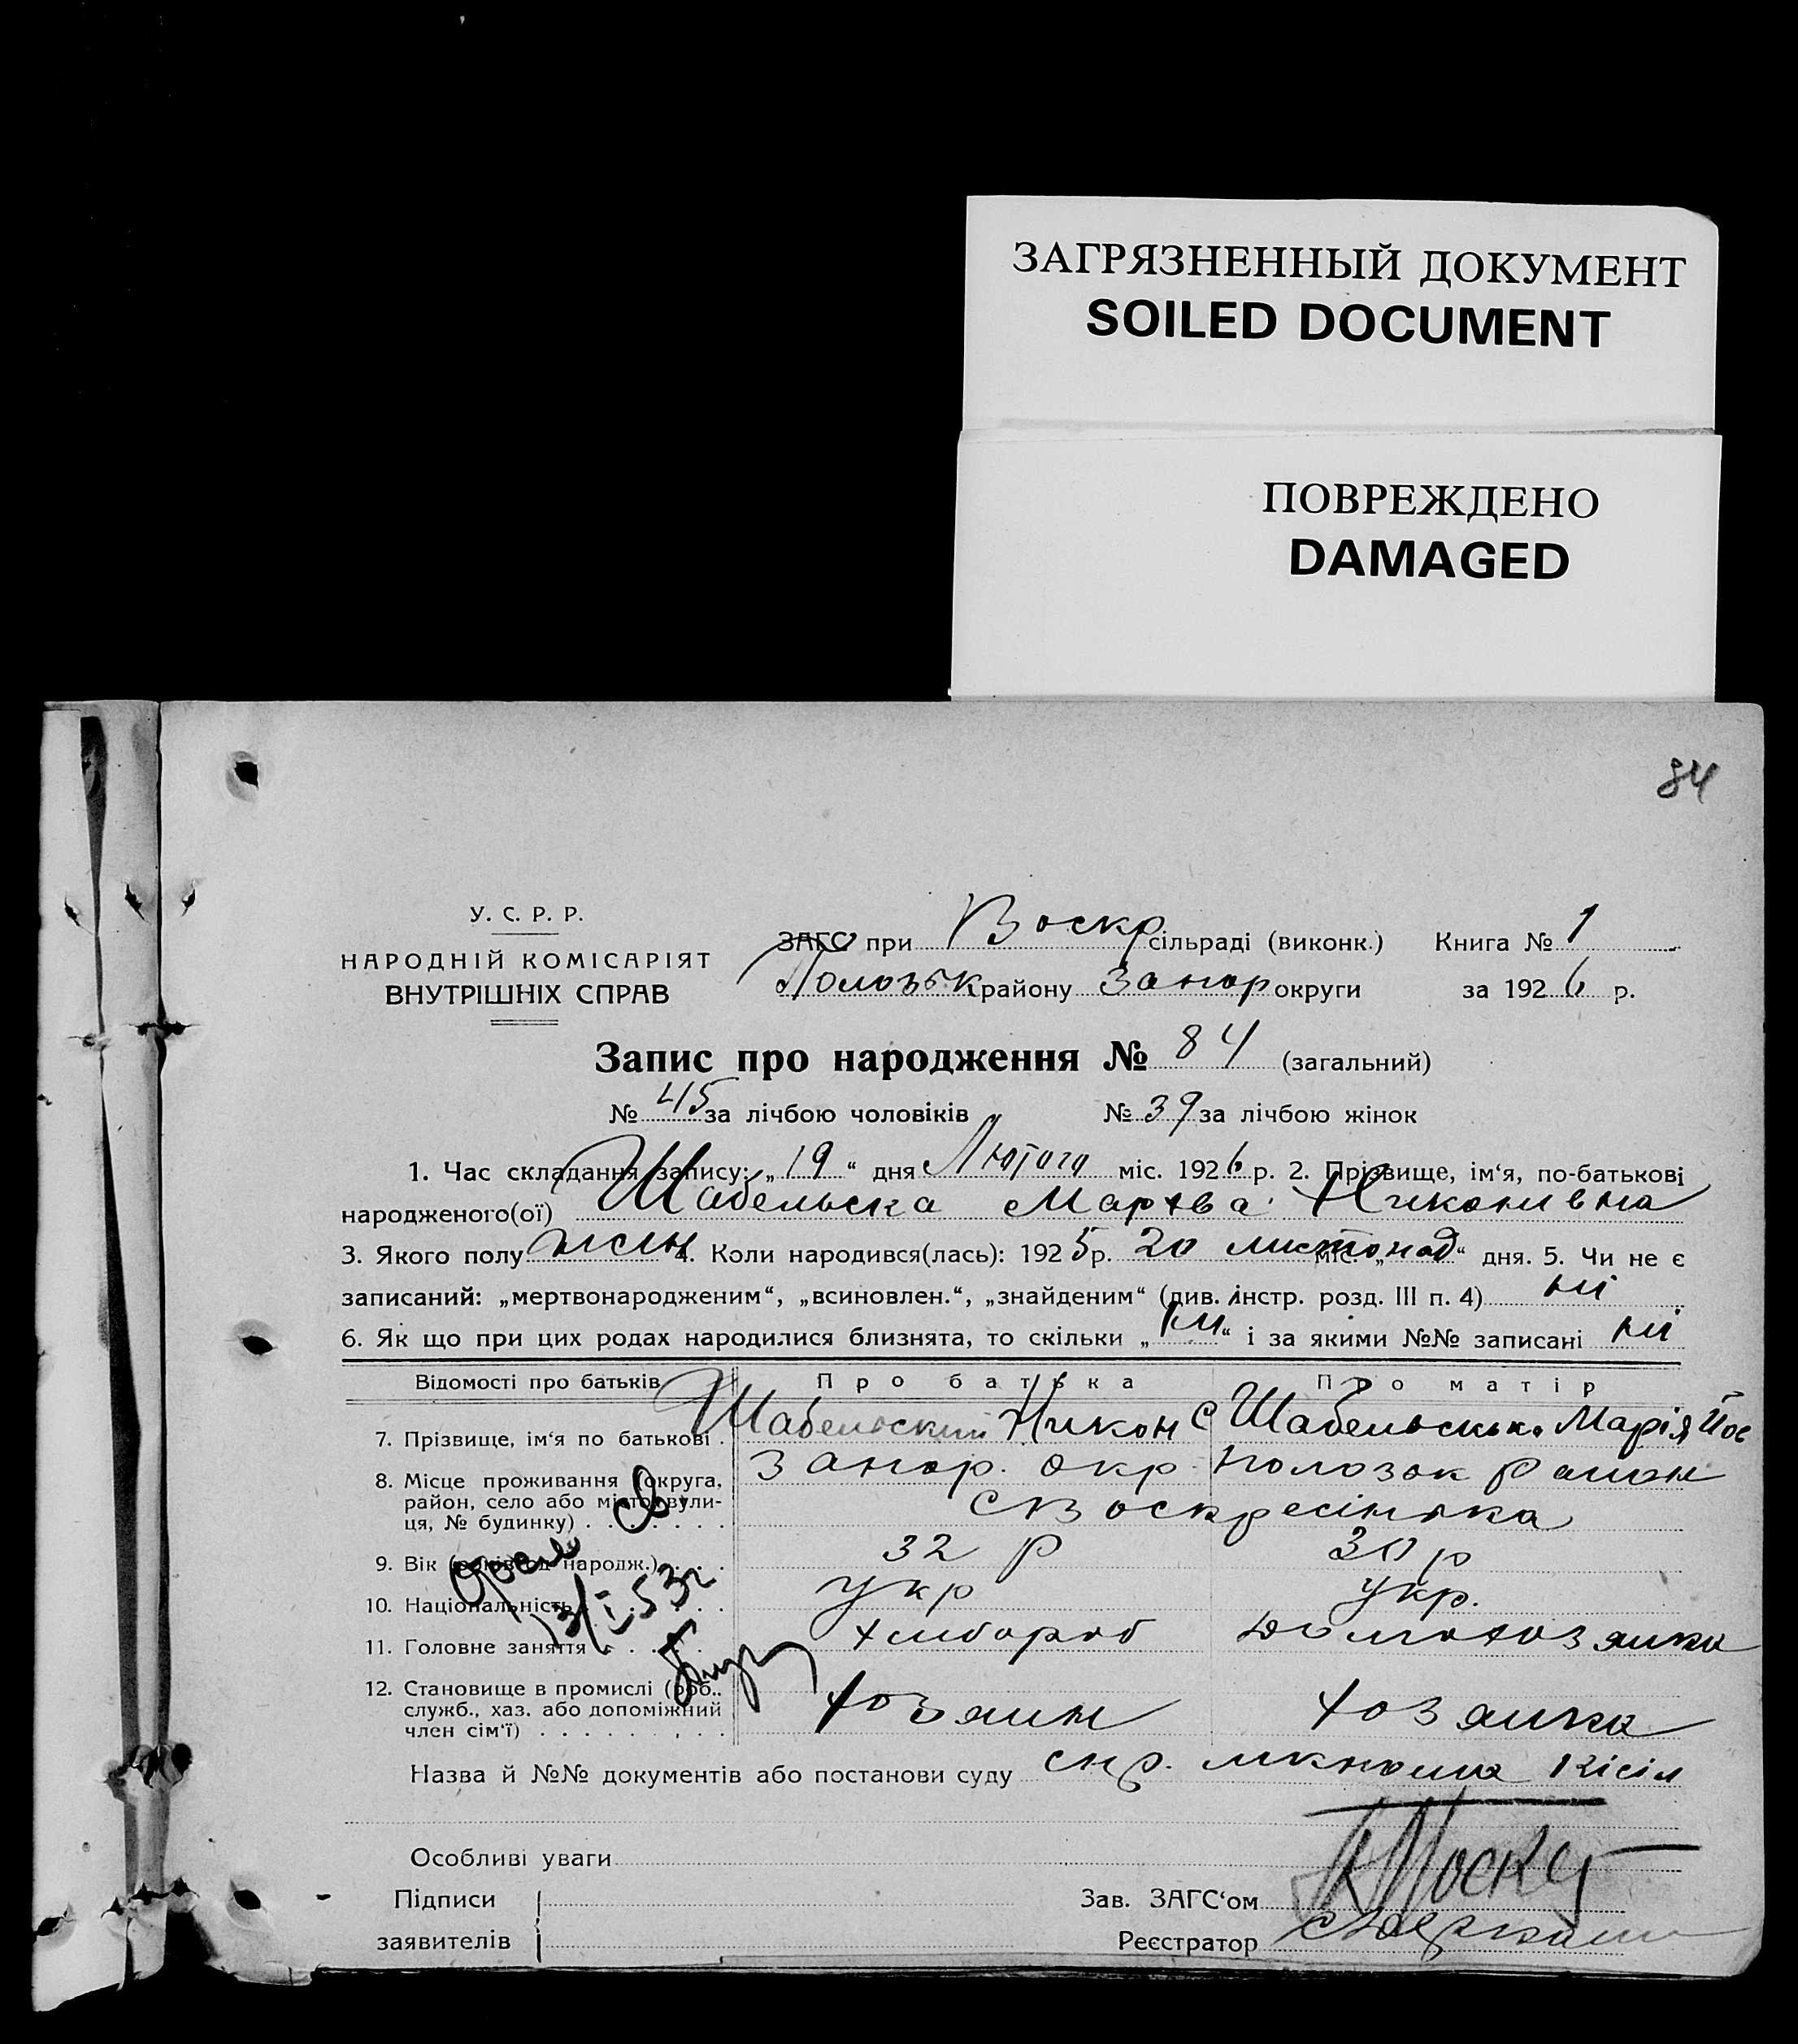 ЗАГРЯЗНЕННЫЙ ДОКУМЕНТ
SOILED DOCUMENT
ПОВРЕЖДЕНО
DAMAGED
84
У. С. Р. Р.
НАРОДНІЙ КОМІСАРІЯТ
ВНУТРІШНІХ СПРАВ
ЗАГС при Воскр сільраді (виконк.) Книга № 1
Полозьк району Запор округи за 1926 р.
Запис про народження № 84 (загальний)
№ 45 за лічбою чоловіків № 39 за лічбою жінок
1. Час складання запису: „19“ дня Лютого міс. 1926 р. 2. Прізвище, ім‘я, по-батькові
народженого(ої) Шабельска Никонивна
3. Якого полу жен 4. Коли народився(лась): 1925 р. 20 листопад міс. „ “ дня. 5. Чи не є
записаний: „мертвонародженим“, „всиновлен.“, „знайденим“ (див. інстр. розд. III п. 4) ні
6. Як що при цих родах народилися близнята, то скільки „ні“ і за якими №№ записані ні
Відомості про батьків Про батька Про матір
7. Прізвище, ім‘я по батькові . Шабельский Никон С Шабельська Марія Йос
8. Місце проживання (округа, Запор. окр Полозьк район
район, село або місто, вули- с Воскресінька
ця, № будинку) . . . . . . .
9. Вік (років од народж.) . . . 32 р 30 р
10. Національність . . . . . укр укр.
11. Головне заняття . . . . . хлібороб домохозяика
12. Становище в промислі (роб.,
служб., хаз. або допоміжний хозяин хозяика
член сім‘ї) . . . . . . . .
13/I 53г
Назва й №№ документів або постанови суду
Особливі уваги
Підписи
заявителів
Зав. ЗАГС‘ом
Реєстратор